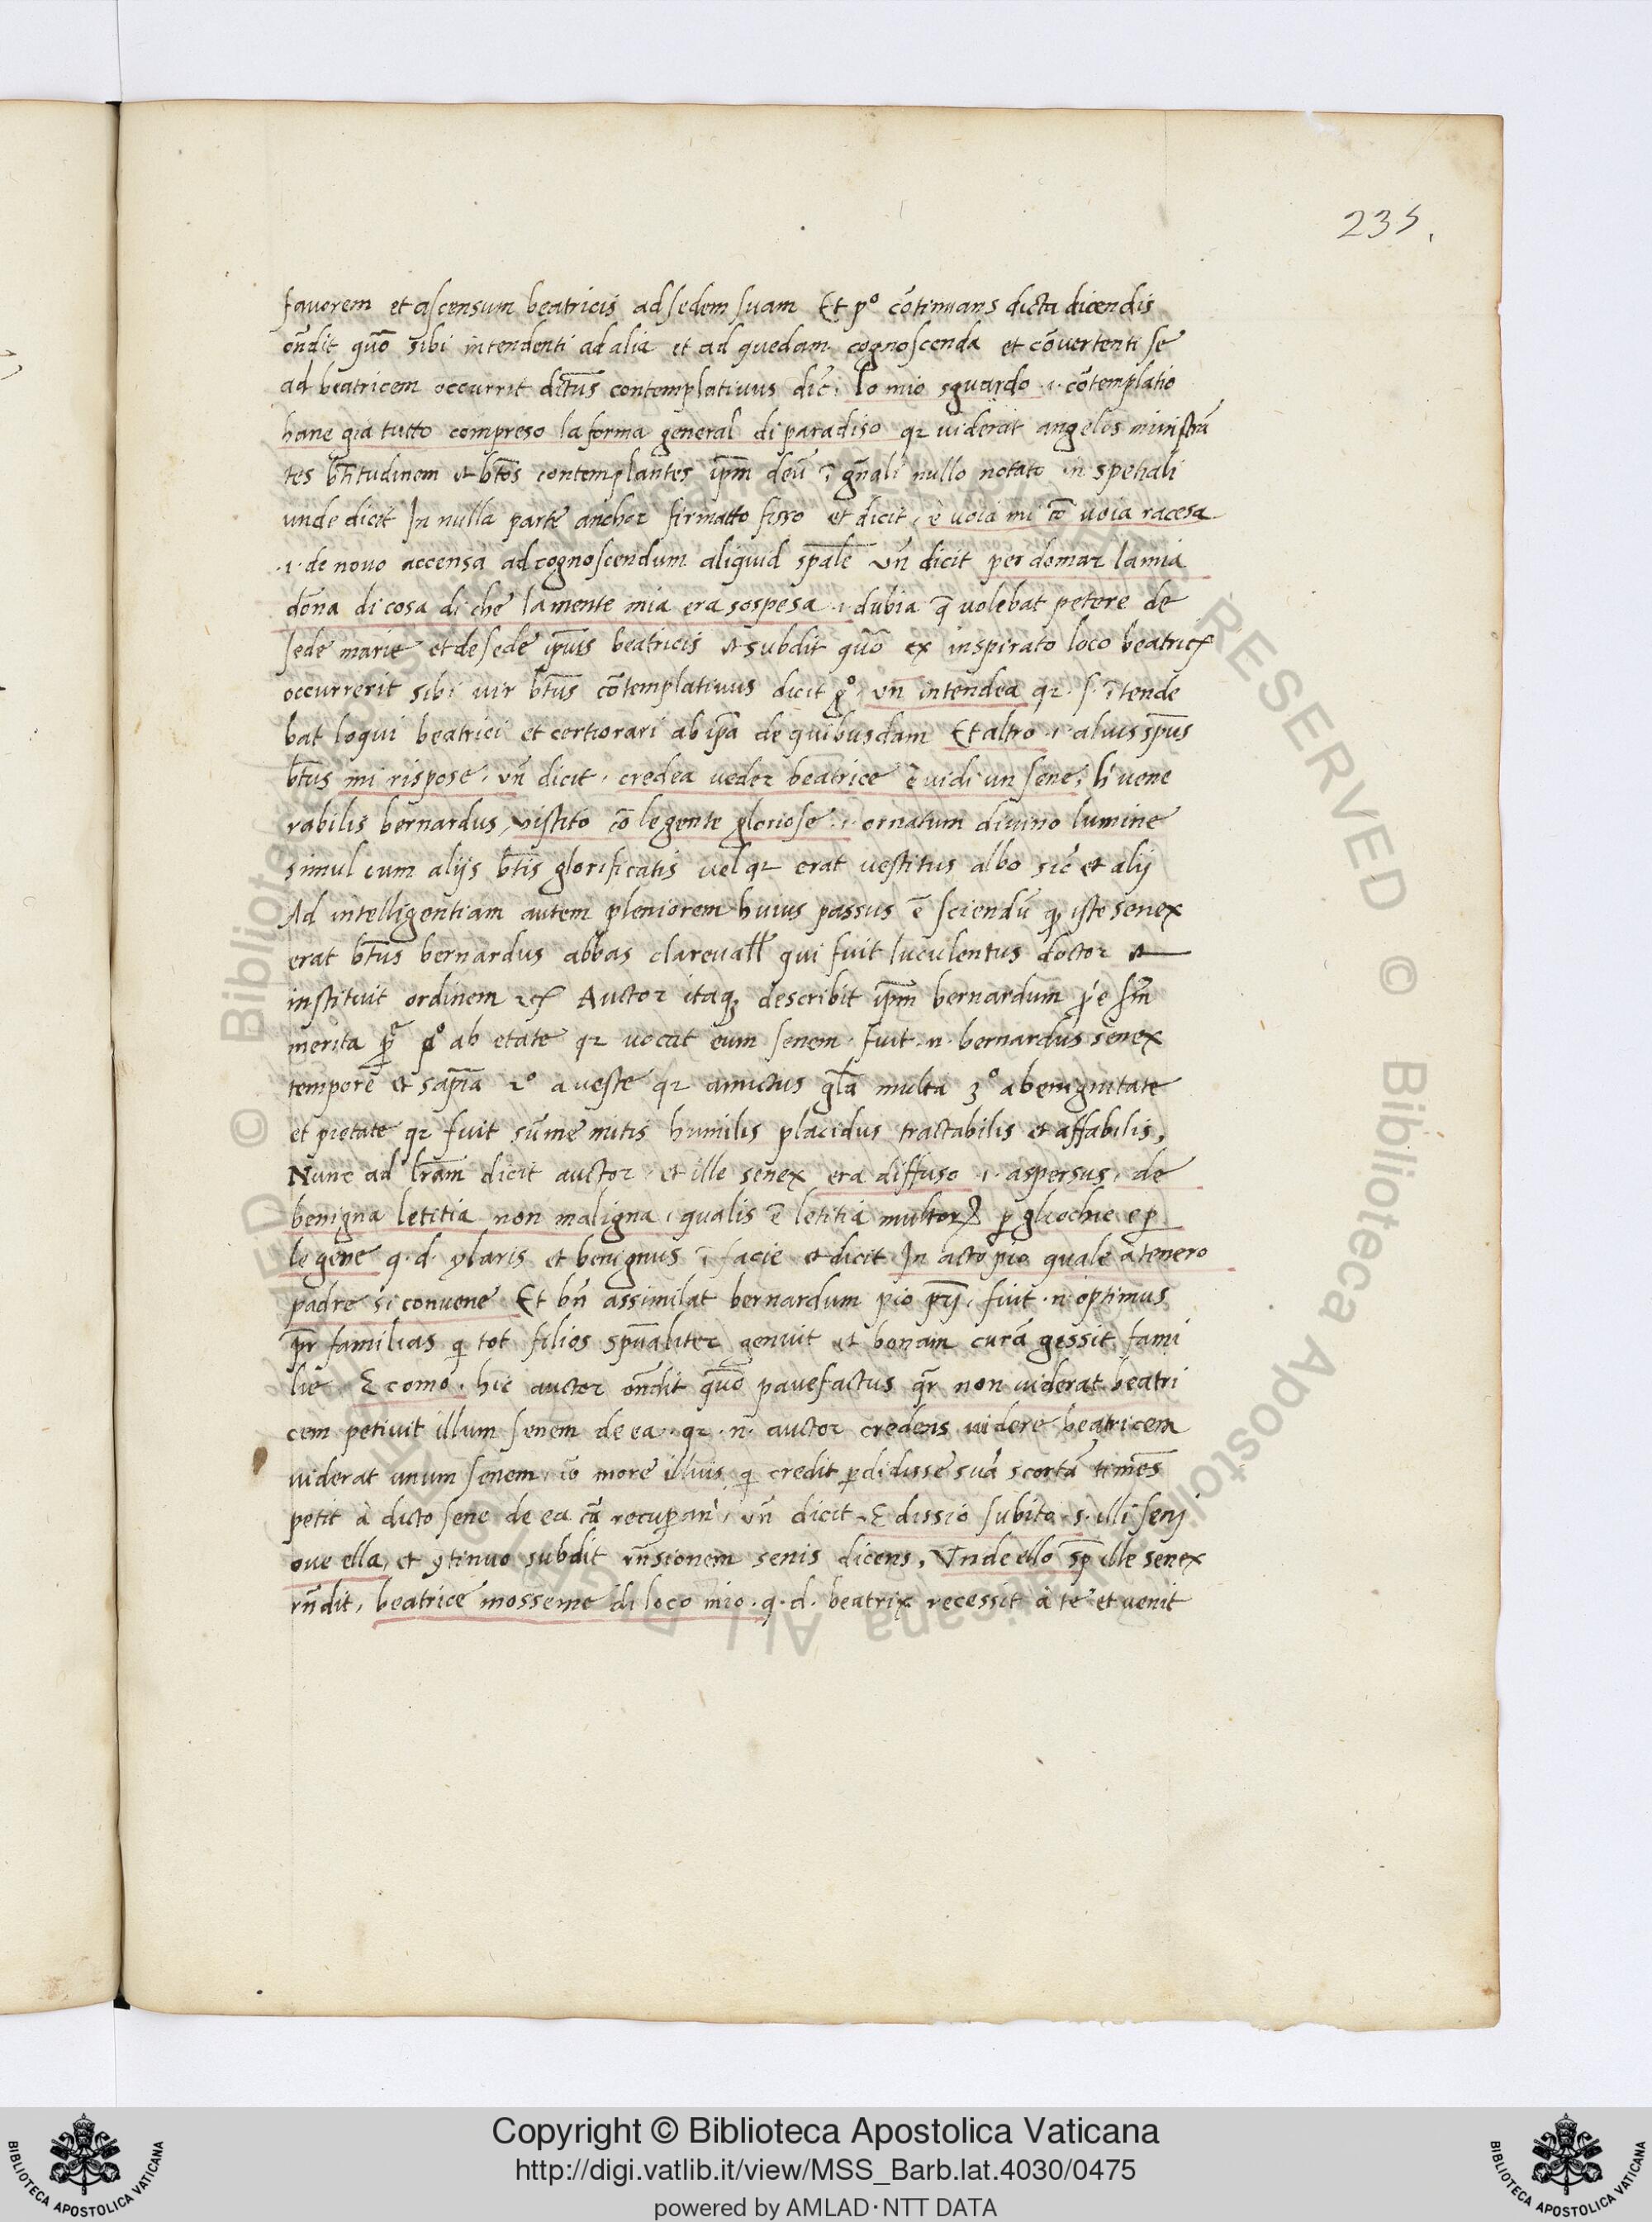 235.
favorem et ascensum beatricis ad sedem suam Et pº cōtinuans dicta dicendis
on̄dit quō sibi intendenti ad alia et ad quedam cognoscenda et cōvertenti se
ad beatricem occurrit dictus contemplativus dic̄. lo mio sguardo .i. cōtemplatio
hane già tutto compreso la forma general di paradiso qz viderat angelos ministrā
tes bt̄itudinem et bt̄os contemplantes ip̄m deū ī gn̄ali nullo notato in spetiali
unde dicit In nulla parte anchor firmatto fisso et dicit, è voia mi cō voia racesa
.i. de novo accensa ad cognoscendum aliquid sp̄ale un̄ dicit per domar la mia
dōna di cosa di che la mente mia era sospesa .i. dubia q̄ volebat petere de
sede marie et de sede ip̄ius beatricis et subdit quō ex inspirato loco beatricȝ
occurrerit sibi vir bt̄us cōtemplativus dicit gº. un intendea qz. s. ītende
bat loqui beatrici et certiorari ab ip̄a de quibusdam Et altro .i. alius sp̄us
bt̄us mi rispose. un̄ dicit. credea veder beatrice e vidi un sene, h' vene
rabilis bernardus, vistito cō le gente gloriose .i. ornatum divino lumine
simul cum alijs bt̄is glorificatis vel qz erat vestitus albo sic̄ et alij
Ad intelligentiam autem pleniorem huius passus ē sciendū qȝ iste senex
erat bt̄us bernardus abbas clarevall qui fuit luculentus doctor et
instituit ordinem Auctor itaqȝ describit ip̄m bernardum
merita pº ab etate qz vocat eum senem. fuit .n. bernardus senex
tempore et sap̄ia 2º a veste qz amictus gl̄a multa 3º a benignitate
et pietate qz fuit sūme mitis humilis placidus tractabilis et affabilis,
Nunc ad lr̄am dicit auctor. et ille senex era diffuso .i. aspersus. de
benigna letitia non maligna, qualis ē letitia multorȝ p gliochie e p
le gene q. d. ylaris et benignus ī facie et dicit In acto pio quale a tenero
padre si convene Et bn̄ assimilat bernardum pio pr̄ij. fuit .n. optimus
pr̄ familias q tot filios sp̄ualiter genuit et bonam curā gessit fami
lie E como. hic auctor on̄dit quō pavefactus qr̄ non viderat beatri
cem petivit illum senem de ea. qz .n. auctor credens videre beatricem
viderat unum senem, iō more illius q credit pdidisse suā scortā timēs
petit à dicto sene de ea un̄ dicit. E dissio subito .s. illi senj
ove ella, et ꝯtinuo subdit rn̄sionem senis dicens. Unde ello sp̄ ille senex
rn̄dit, beatrice mosseme di loco mio. q. d. beatrix recessit à te et venit
Copyright © Biblioteca Apostolica Vaticana
http://digi.vatlib.it/view/MSS_Barb.lat.4030/0475
powered by AMLAD·NTT DATA